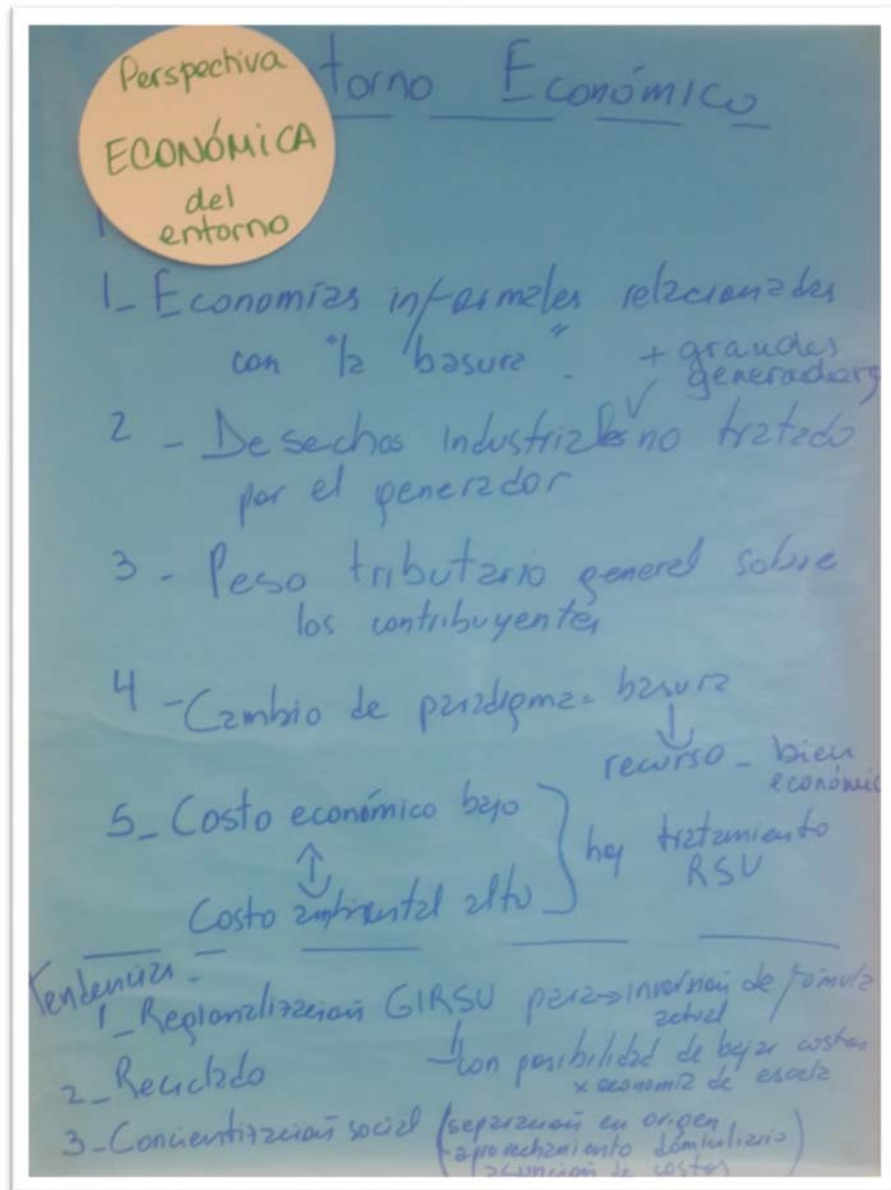 Perspectiva
ECONÓMICA
del
entorno
torno Económico
1_ Economías informales relacionadas
con "la basura". + grandes
generadores
2 - Desechos industriales no tratado
por el generador
3 - Peso tributario general sobre
los contribuyentes
4 - Cambio de paradigma = basura
↓
recurso - bien
económic
5_ Costo económico bajo
Costo ambiental alto
hoy tratamiento
RSU
Tendencias -
1_ Regionalización GIRSU para → inversión de fórmula
actual
con posibilidad de bajar costos
x economía de escala
2_ Reciclado
3 - Concientización social (separación en origen
- aprovechamiento domiciliario)
asunción de costos